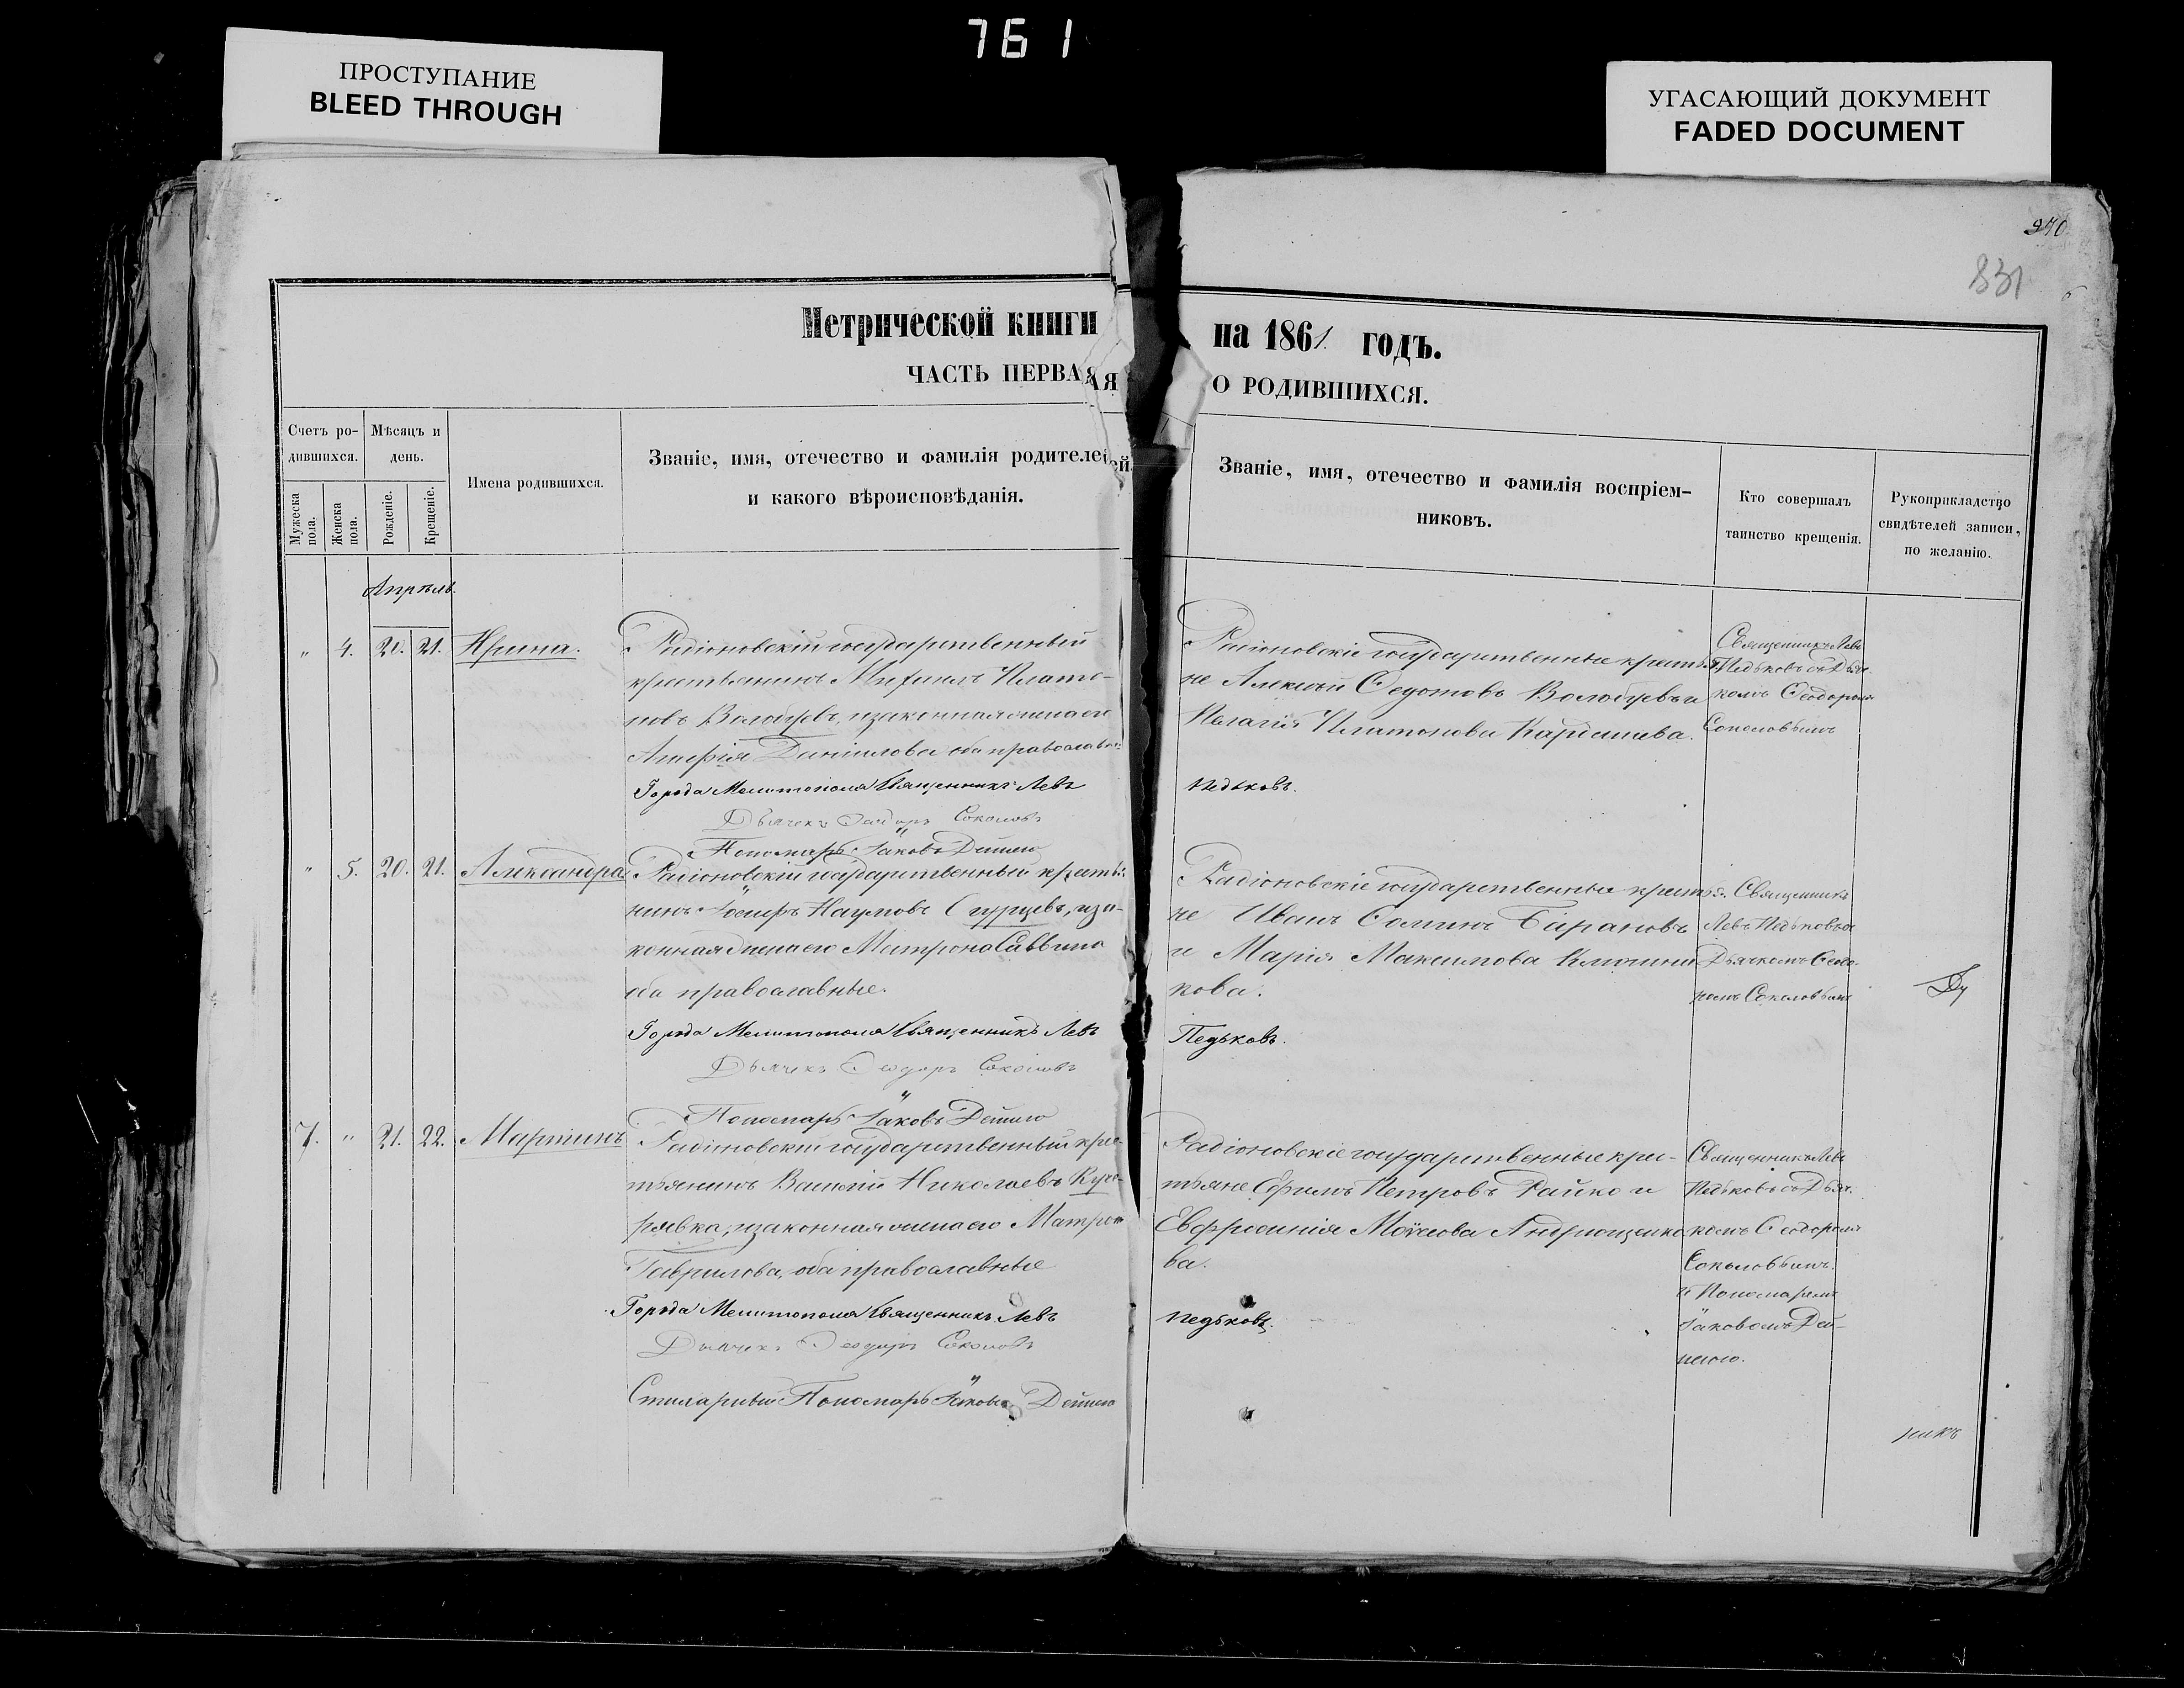 761
ПРОСТУПАНИЕ
BLEED THROUGH
УГАСАЮЩИЙ ДОКУМЕНТ
FADED DOCUMENT
270
831
Метрической книги на 1861 годъ.
ЧАСТЬ ПЕРВАЯ О РОДИВШИХСЯ.
Счетъ ро-
дившихся.
Мѣсяцъ и
день.
Мужеска пола.
Женска пола.
Рожденіе.
Крещеніе.
Имена родившихся.
Званіе, имя, отечество и фамилія родителей
и какого вѣроисповѣданія.
Званіе, имя, отечество и фамилія воспріем-
никовъ.
Кто совершалъ
таинство крещенія.
Рукоприкладство
свидѣтелей записи,
по желанію.
Апрѣль.
" 4. 20. 21. Ирина.
Радіоновскій государственный
крестьянинъ Михаилъ Плато-
новъ Волобуевъ, изаконная жена его
Данилова оба православ:
Города Мелитополя Священникъ Левъ
Дьячекъ Ѳеодоръ Соколовъ
Пономарь Іаковъ
Радіоновскіе государственные крестья
не Алексѣй Ѳедотовъ Волобуевъ и
Пелагія Платонова Кардашева.
Педьковъ.
Священникъ Левъ
Педьковъ съ Дьяч
комъ Ѳеодоромъ
Соколовымъ
" 5. 20. 21. Александра
Радіоновскій государственный крестья
нинъ Іосифъ Наумовъ иза-
конная жена его Матрона Саввина
оба православные.
Города Мелитополя Священникъ Левъ
Дьячекъ Ѳеодоръ Соколовъ
Пономарь Іаковъ
Радіоновскіе государственные крестья
не Иванъ Барановъ
и Марія Максимова
кова.
Педьковъ.
Священникъ
Левъ Педьковъ съ
Дьячкомъ Ѳеодо-
ромъ Соколовымъ
7. " 21. 22. Мартинъ
Радіоновскій государственный кре-
стьянинъ Василій Николаевъ
изаконная жена его Матрона
Гаврилова, оба православные
Города Мелитополя Священникъ Левъ
Дьячекъ Ѳеодоръ Соколовъ
Пономарь Іаковъ
Радіоновскіе государственные кре-
стьяне Ефимъ Петровъ Райко и
Евфросинія Моѵсеова Андрющенко
ва.
Педьковъ.
Священникъ Левъ
Педьковъ съ Дьяч
комъ Ѳеодоромъ
Соколовымъ.
и Пономаремъ
Іаковомъ